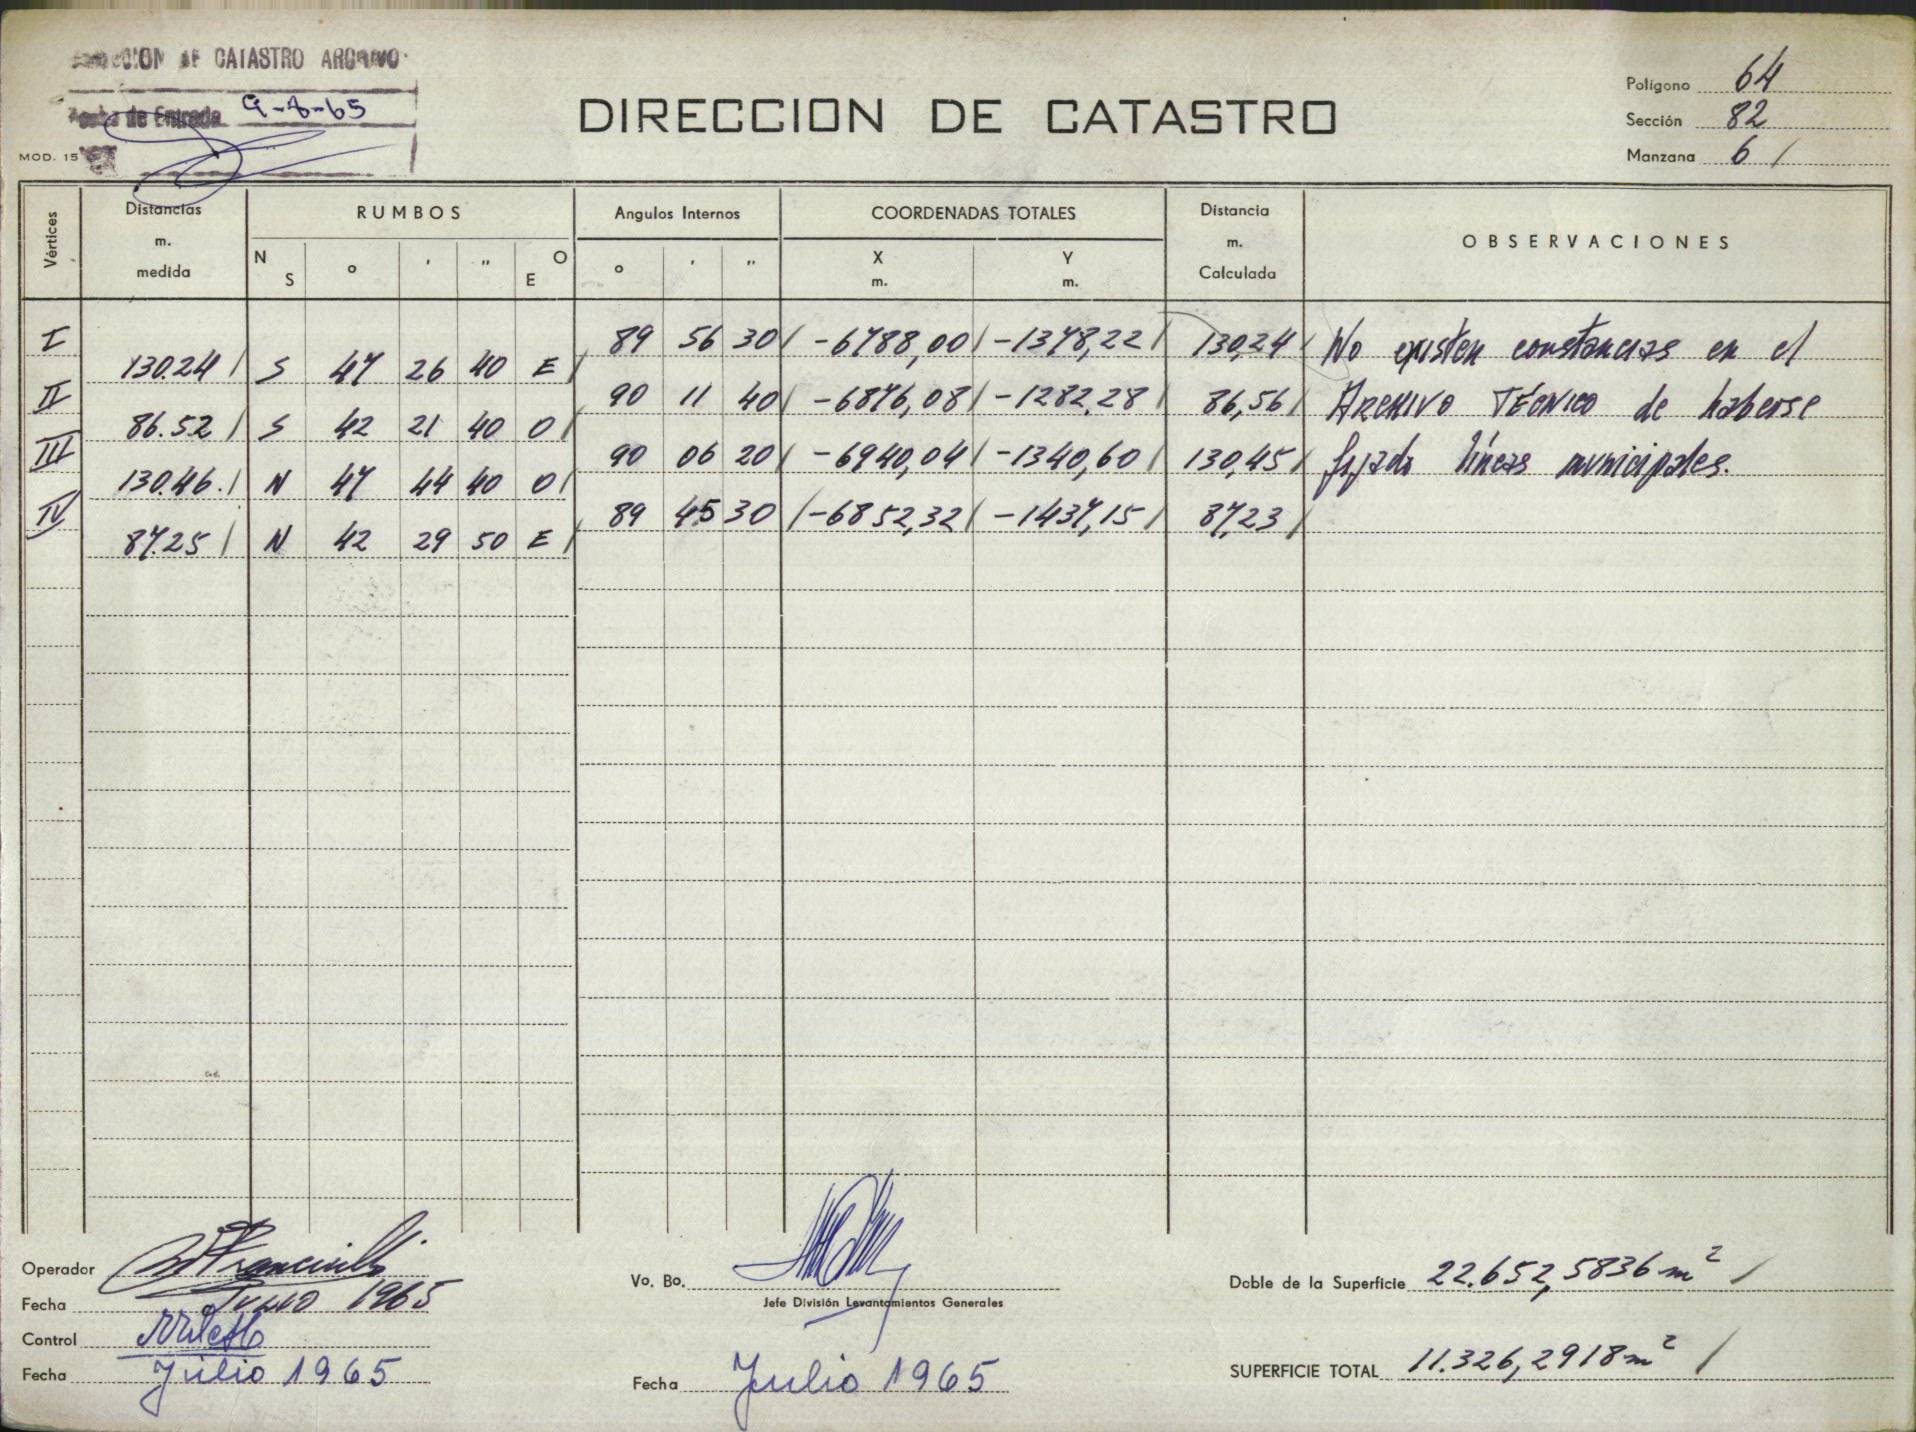 CATASTRO ARCHIVO
de Entrada 9-8-65
MOD. 15
DIRECCION DE CATASTRO
Polígono 64
Sección 82
Manzana 6 /
Vértices
Distancias m. medida
RUMBOS
N S ° ' " O E
Angulos Internos
° ' "
COORDENADAS TOTALES
X m. Y m.
Distancia m. Calculada
OBSERVACIONES
I 89 56 30 / -6788,00 / -1378,22 / 130,24 / No existen constancias en el
130.24 / S 47 26 40 E /
II 90 11 40 / -6876,08 / -1282,28 / 86,56 / ARCHIVO TÉCNICO de haberse
86.52 / S 42 21 40 O /
III 90 06 20 / -6940,04 / -1340,60 / 130,45 / fijado líneas municipales.
130.46. / N 47 44 40 O /
IV 89 45 30 / -6852,32 / -1437,15 / 87,23 /
87.25 / N 42 29 50 E /
Operador
Fecha Julio 1965
Control
Fecha Julio 1965
Vo. Bo.
Jefe División Levantamientos Generales
Fecha Julio 1965
Doble de la Superficie 22.652,5836 m² /
SUPERFICIE TOTAL 11.326,2918 m² /